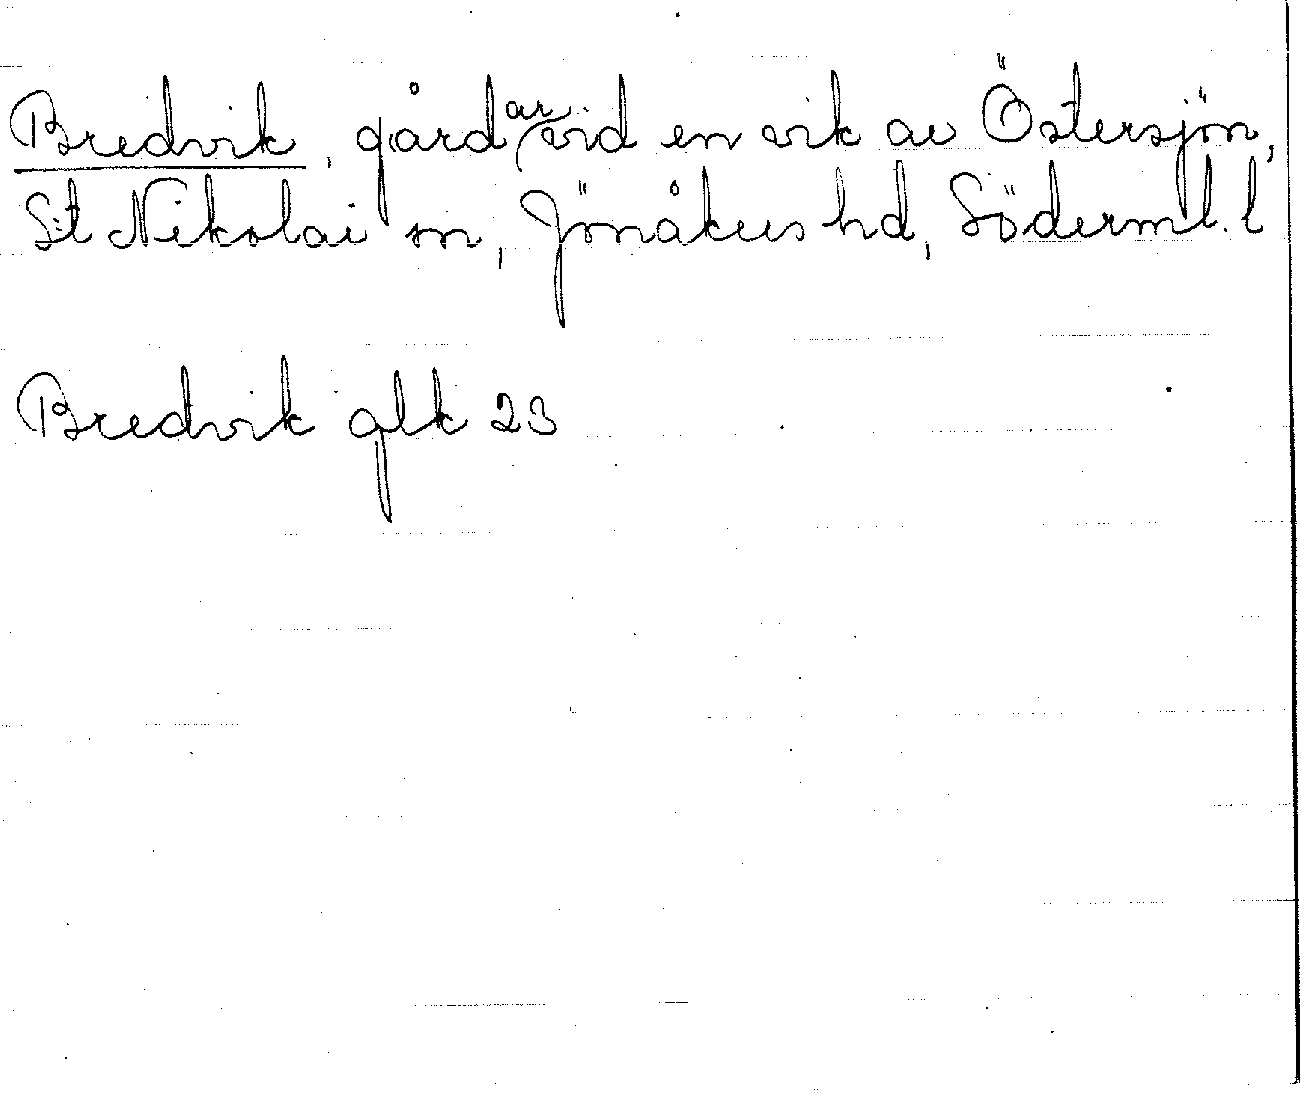 Bredvik, gårdar vid en vik av Östersjön,
S:t Nikolai sn, Jönåkers hd, Söderml. l
Bredvik glk 23